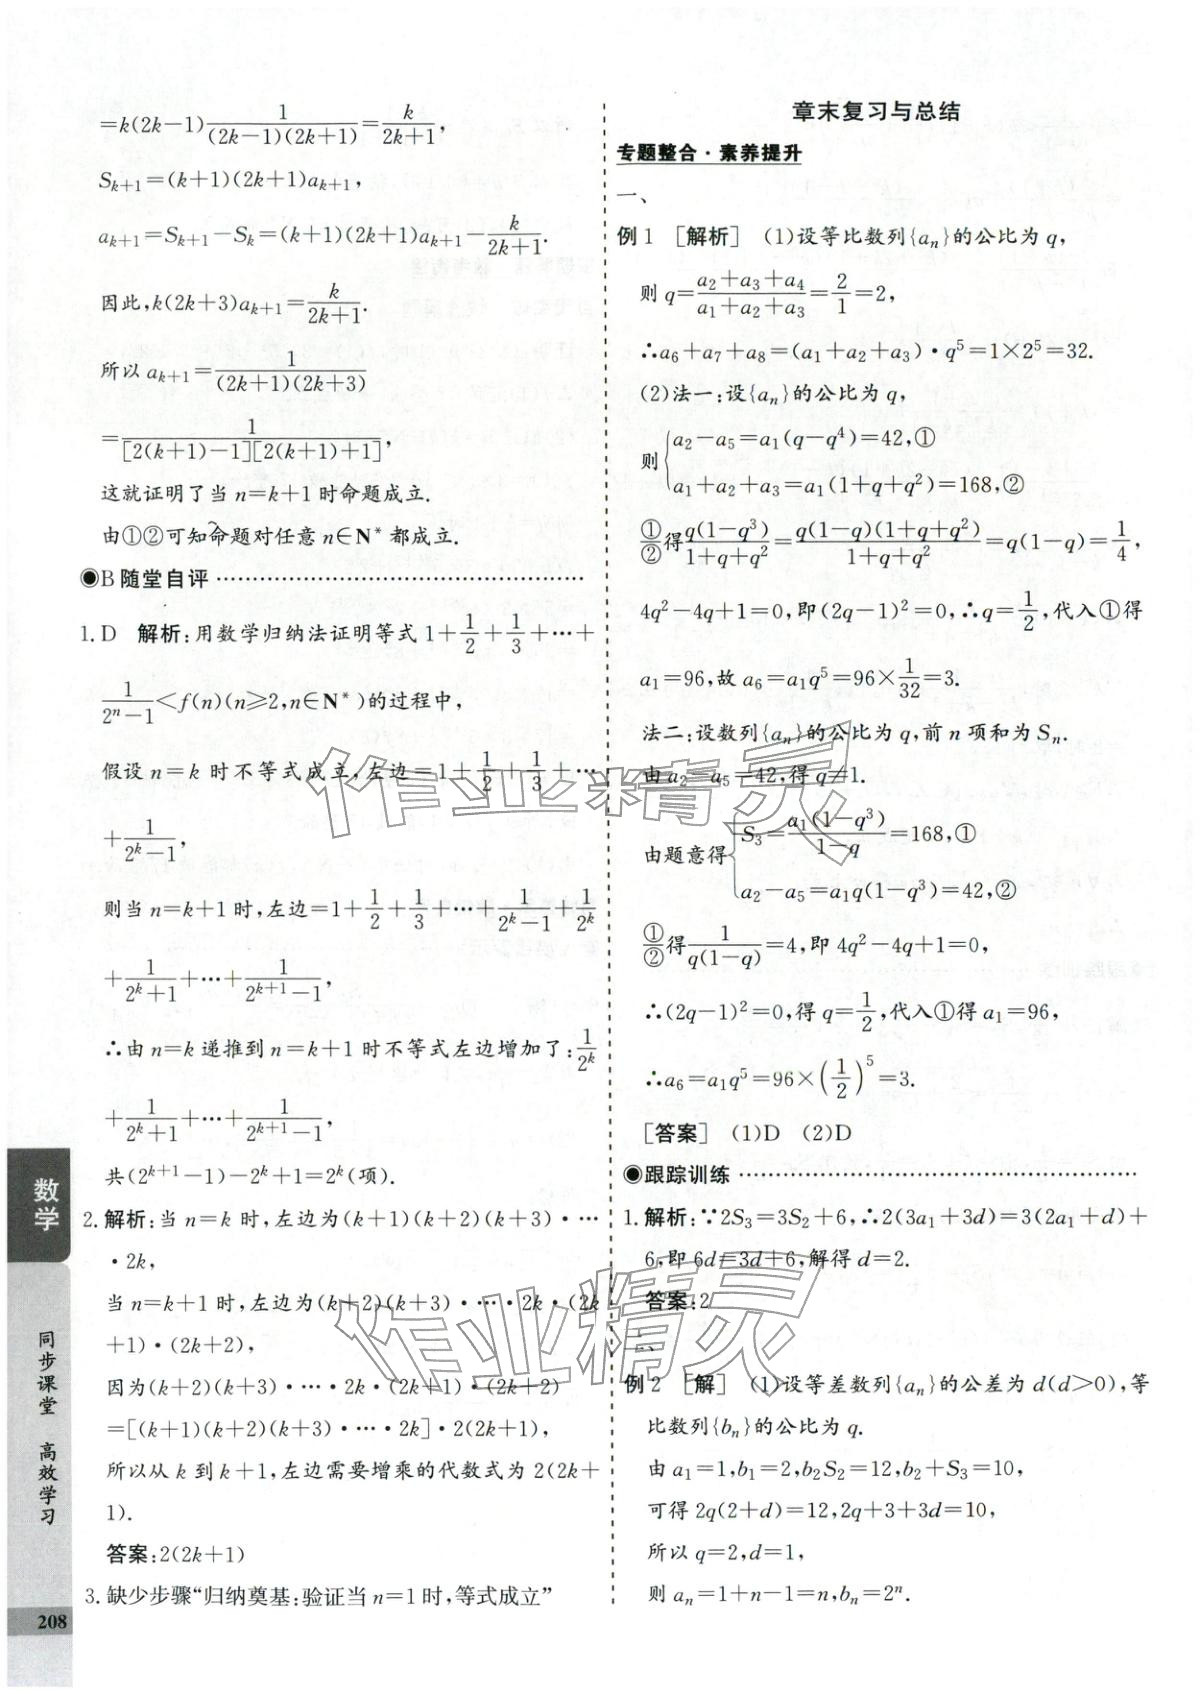 =k(2k-1)\frac{1}{(2k-1)(2k+1)}=\frac{k}{2k+1},
S_{k+1}=(k+1)(2k+1)a_{k+1},
a_{k+1}=S_{k+1}-S_k=(k+1)(2k+1)a_{k+1}-\frac{k}{2k+1}.
因此,k(2k+3)a_{k+1}=\frac{k}{2k+1}.
所以 a_{k+1}=\frac{1}{(2k+1)(2k+3)}
=\frac{1}{[2(k+1)-1][2(k+1)+1]},
这就证明了当 n=k+1 时命题成立.
由①②可知命题对任意 n∈N* 都成立.
◉B 随堂自评 ……………………………………
1.D 解析:用数学归纳法证明等式 1+\frac{1}{2}+\frac{1}{3}+…+
\frac{1}{2^n-1}<f(n)(n≥2,n∈N*)的过程中,
假设 n=k 时不等式成立,左边=1+\frac{1}{2}+\frac{1}{3}+…
+\frac{1}{2^k-1},
则当 n=k+1 时,左边=1+\frac{1}{2}+\frac{1}{3}+…+\frac{1}{2^k-1}+\frac{1}{2^k}
+\frac{1}{2^k+1}+…+\frac{1}{2^{k+1}-1},
∴由 n=k 递推到 n=k+1 时不等式左边增加了:\frac{1}{2^k}
+\frac{1}{2^k+1}+…+\frac{1}{2^{k+1}-1},
共(2^{k+1}-1)-2^k+1=2^k(项).
2.解析:当 n=k 时,左边为(k+1)(k+2)(k+3)·…
·2k,
当 n=k+1 时,左边为(k+2)(k+3)·…·2k·(2k
+1)·(2k+2),
因为(k+2)(k+3)·…·2k·(2k+1)·(2k+2)
=[(k+1)(k+2)(k+3)·…·2k]·2(2k+1),
所以从 k 到 k+1,左边需要增乘的代数式为 2(2k+
1).
答案:2(2k+1)
3.缺少步骤“归纳奠基:验证当 n=1 时,等式成立”
章末复习与总结
专题整合·素养提升
一、
例 1 [解析] (1)设等比数列{a_n}的公比为 q,
则 q=\frac{a_2+a_3+a_4}{a_1+a_2+a_3}=\frac{2}{1}=2,
∴a_6+a_7+a_8=(a_1+a_2+a_3)·q^5=1×2^5=32.
(2)法一:设{a_n}的公比为 q,
则{a_2-a_5=a_1(q-q^4)=42,①
a_1+a_2+a_3=a_1(1+q+q^2)=168,②
\frac{①}{②}得\frac{q(1-q^3)}{1+q+q^2}=\frac{q(1-q)(1+q+q^2)}{1+q+q^2}=q(1-q)=\frac{1}{4},
4q^2-4q+1=0,即(2q-1)^2=0,∴q=\frac{1}{2},代入①得
a_1=96,故 a_6=a_1q^5=96×\frac{1}{32}=3.
法二:设数列{a_n}的公比为 q,前 n 项和为 S_n.
由 a_2-a_5=42,得 q≠1.
由题意得{S_3=\frac{a_1(1-q^3)}{1-q}=168,①
a_2-a_5=a_1q(1-q^3)=42,②
\frac{①}{②}得\frac{1}{q(1-q)}=4,即 4q^2-4q+1=0,
∴(2q-1)^2=0,得 q=\frac{1}{2},代入①得 a_1=96,
∴a_6=a_1q^5=96×(\frac{1}{2})^5=3.
[答案] (1)D (2)D
◉跟踪训练 ……………………………………
1.解析:∵2S_3=3S_2+6,∴2(3a_1+3d)=3(2a_1+d)+
6,即 6d=3d+6,解得 d=2.
答案:2
二、
例 2 [解] (1)设等差数列{a_n}的公差为 d(d>0),等
比数列{b_n}的公比为 q.
由 a_1=1,b_1=2,b_2S_2=12,b_2+S_3=10,
可得 2q(2+d)=12,2q+3+3d=10,
所以 q=2,d=1,
则 a_n=1+n-1=n,b_n=2^n.
数学
同步课堂 高效学习
208
作业精灵
作业精灵